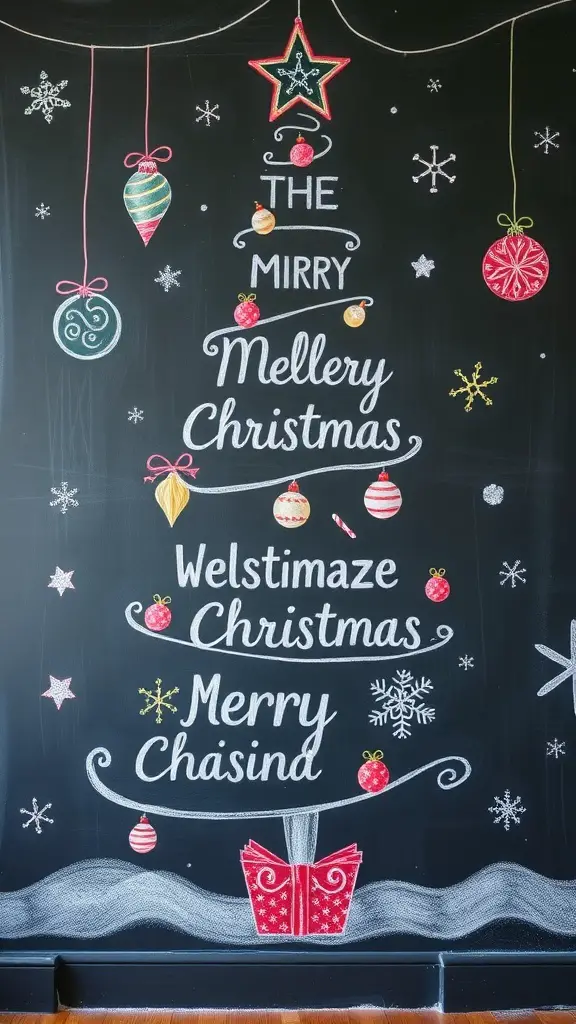 THE
MIRRY
Mellery
Christmas
Welstimaze
Christmas
Merry
Chasind